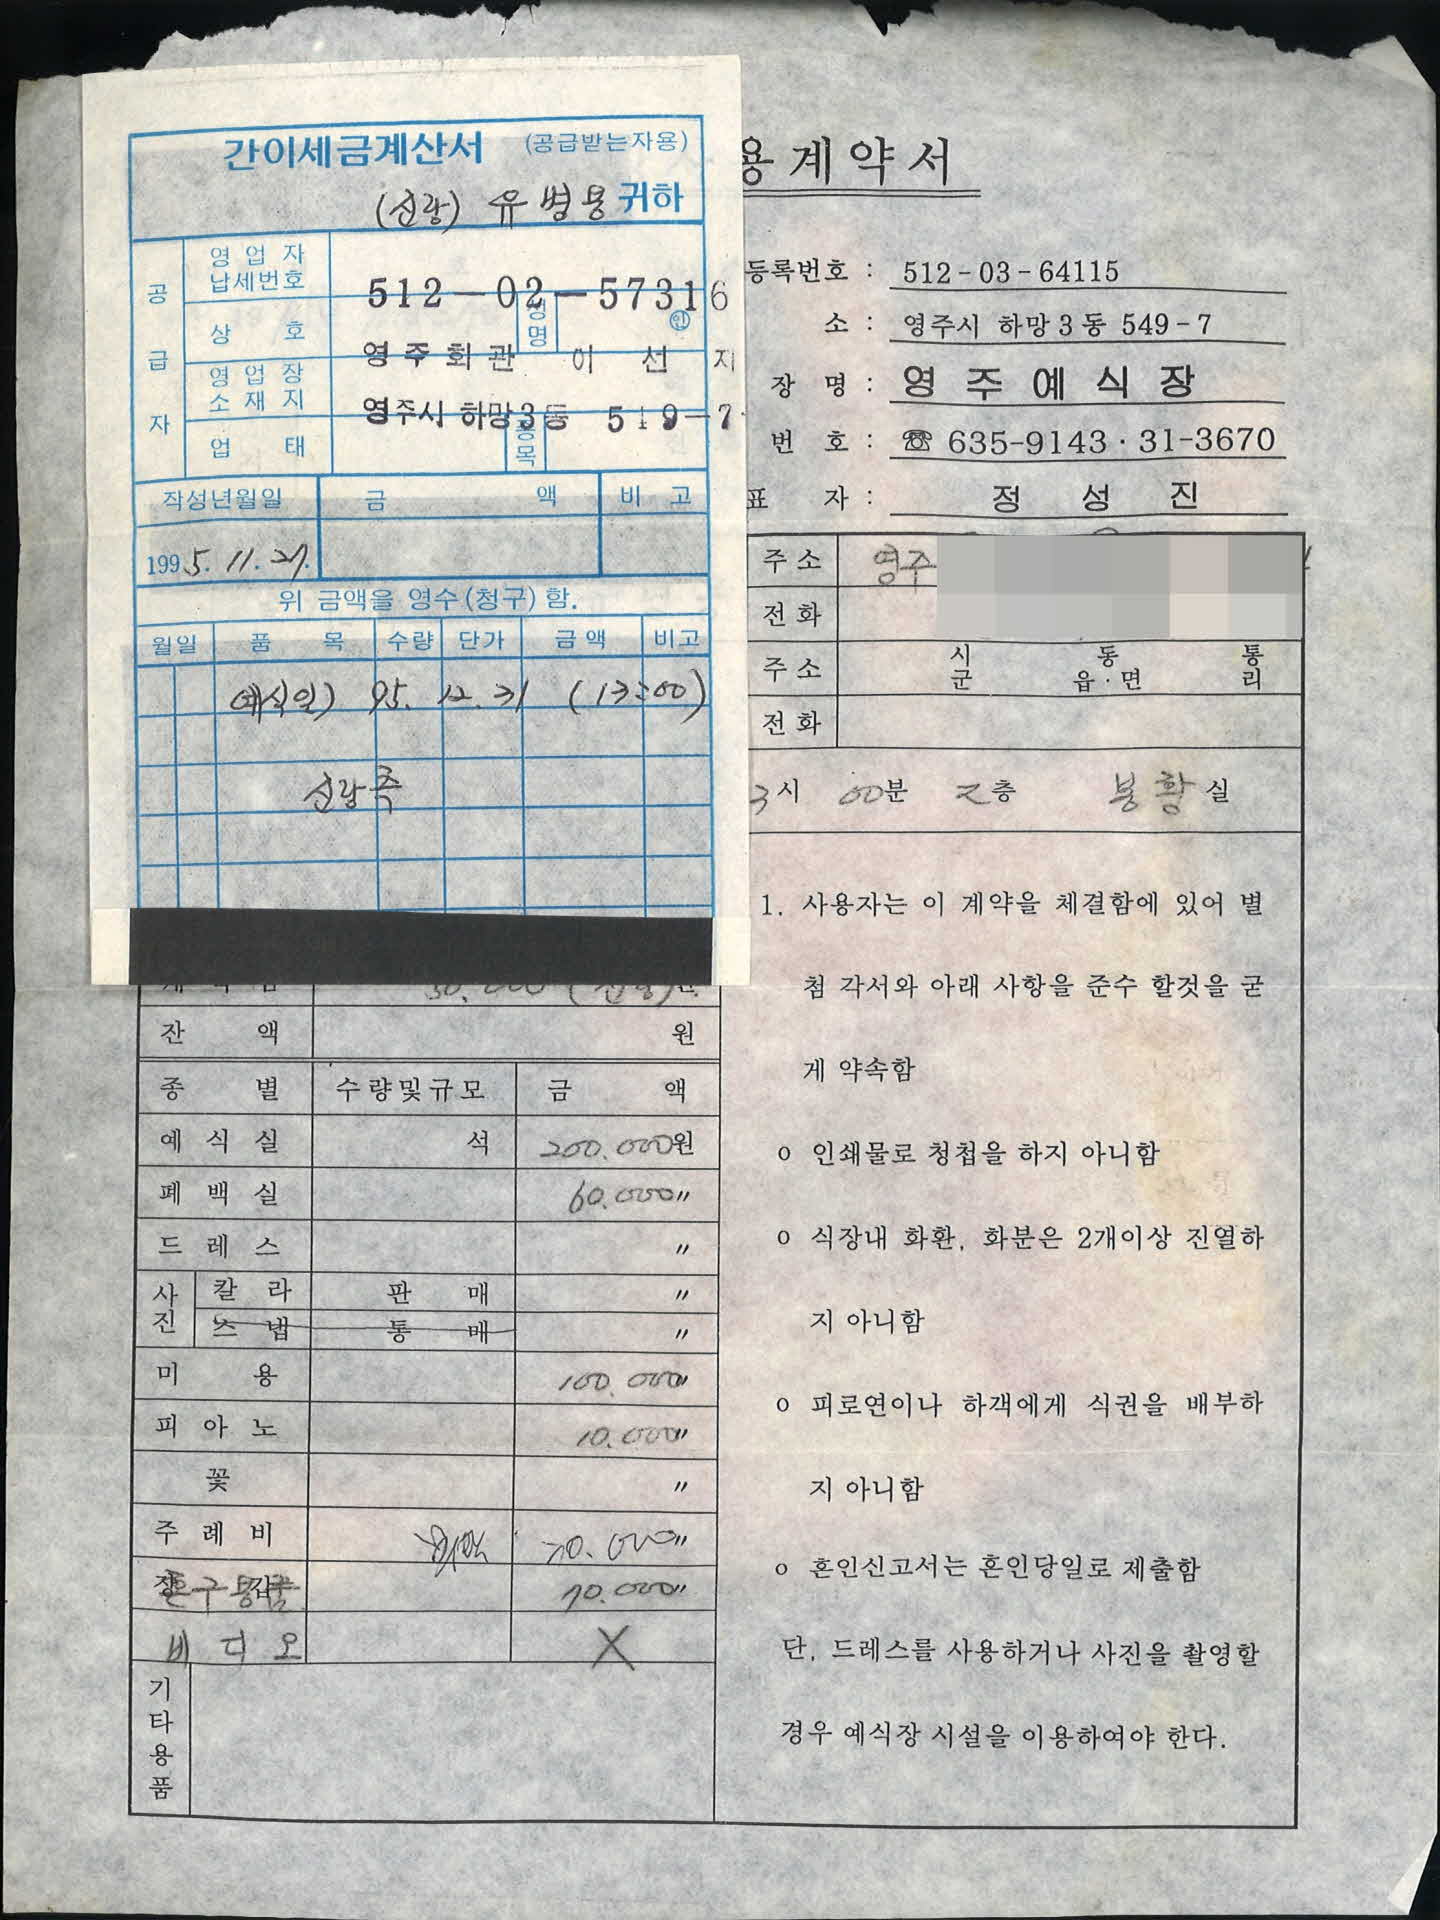 간이세금계산서 (공급받는자용)
(신랑) 유병용 귀하
공급자
영업자 납세번호 512-02-57316
상호 영주회관 성명 이선지 인
영업장 소재지 영주시 하망3동 519-7
업태 종목
작성년월일 금액 비고
1995. 11. 27.
위 금액을 영수(청구)함.
월일 품목 수량 단가 금액 비고
예식일) 95. 12. 31 (13:00)
신랑측
용계약서
등록번호 : 512-03-64115
소 : 영주시 하망3동 549-7
장명 : 영주예식장
번호 : ☎ 635-9143 · 31-3670
표자 : 정성진
주소 영주
전화
주소 시군 동읍·면 통리
전화
3시 00분 2층 봉황실
30.000 (신랑)
잔액 원
종별 수량및규모 금액
예식실 석 200.000원
폐백실 60.000〃
드레스 〃
사진 칼라 판 매 〃
스냅 통 매 〃
미용 100.000〃
피아노 10.000〃
꽃 〃
주례비 20.000〃
장갑 10.000〃
비디오 X
기타용품
1. 사용자는 이 계약을 체결함에 있어 별
첨 각서와 아래 사항을 준수 할것을 굳
게 약속함
o 인쇄물로 청첩을 하지 아니함
o 식장내 화환, 화분은 2개이상 진열하
지 아니함
o 피로연이나 하객에게 식권을 배부하
지 아니함
o 혼인신고서는 혼인당일로 제출함
단, 드레스를 사용하거나 사진을 촬영할
경우 예식장 시설을 이용하여야 한다.